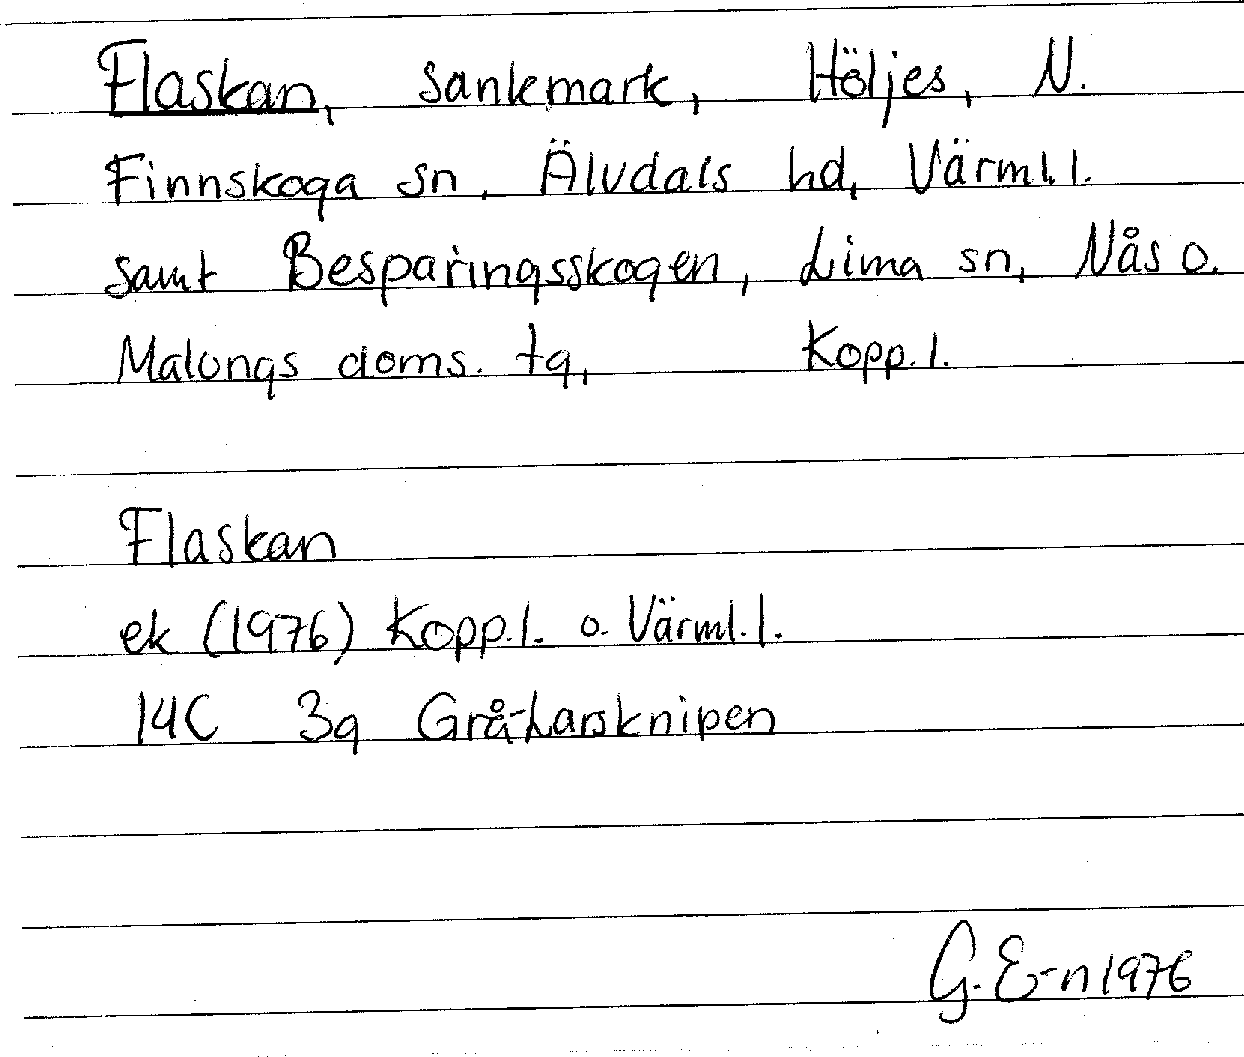 Flaskan, sankmark, Höljes, N.
Finnskoga sn, Älvdals hd, Värml.l.
samt Besparingsskogen, Lima sn, Nås o.
Malungs doms. tg, Kopp.l.
Flaskan
ek (1976) Kopp.l. o. Värml.l.
14C 3g Grå-Larsknipen
G. E-n 1976